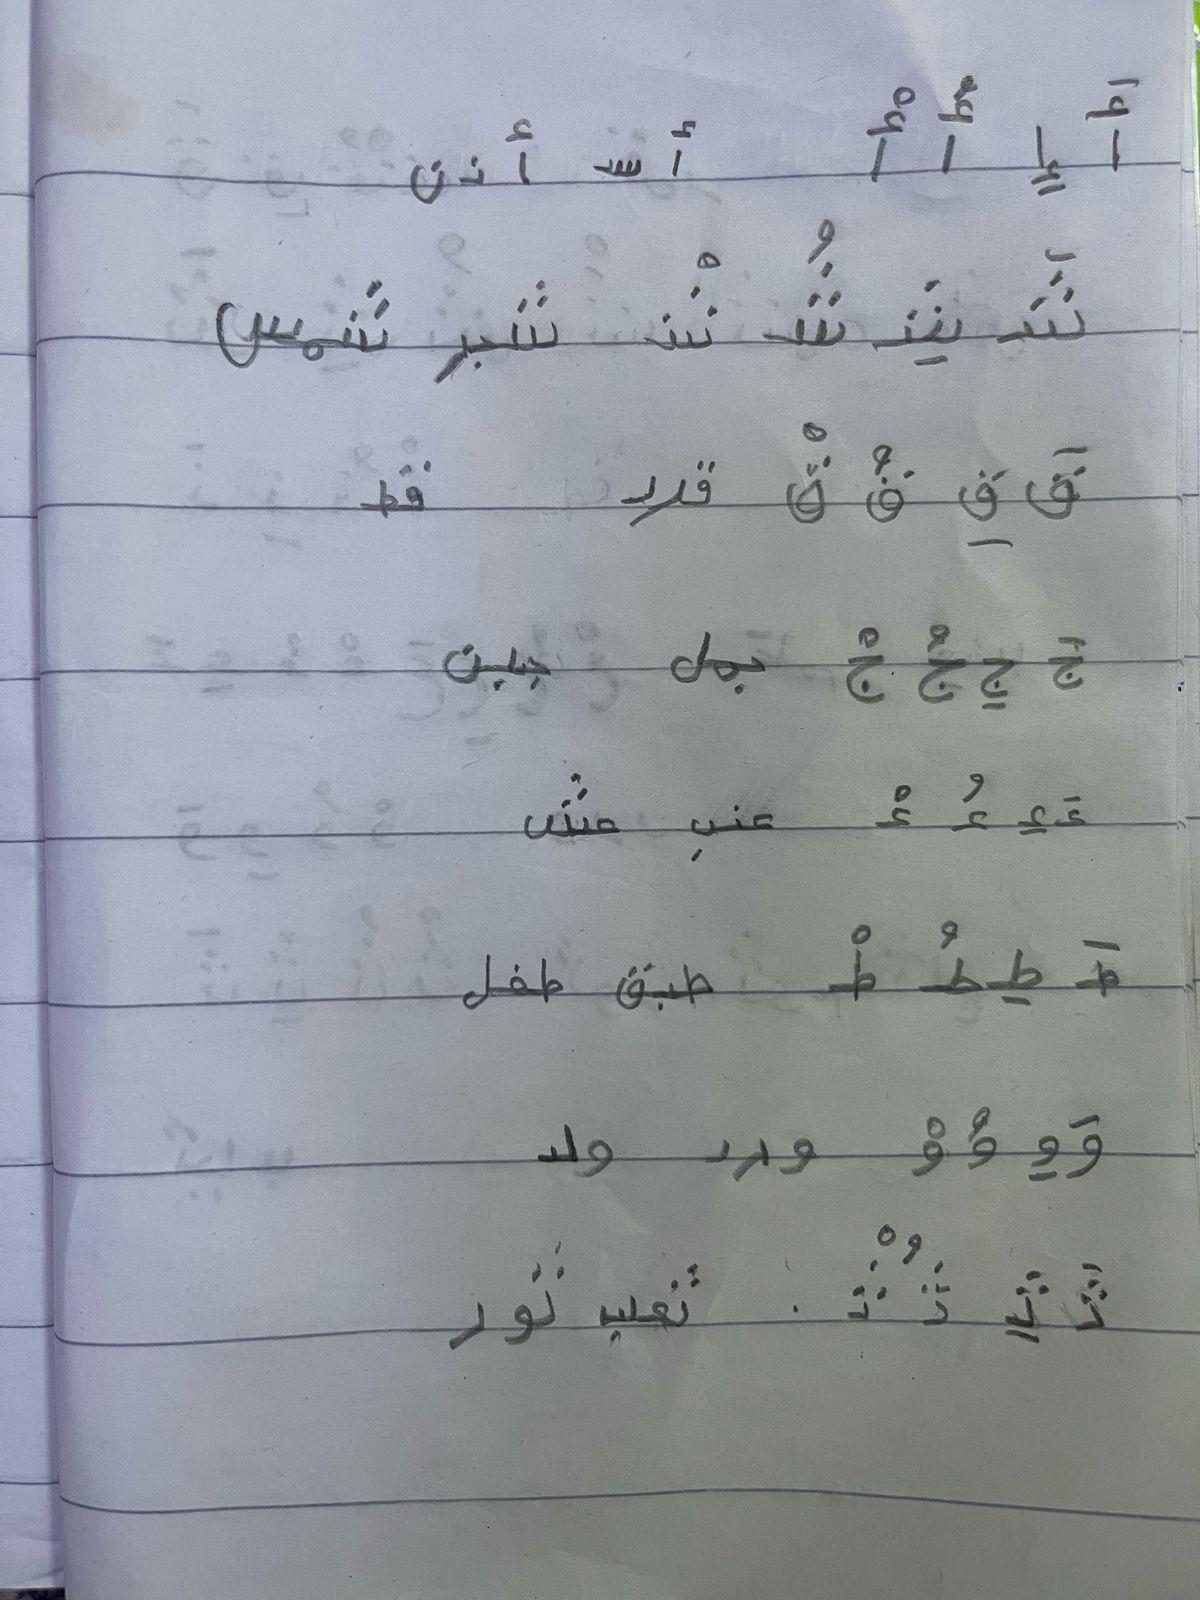 أَ إِ أُ أْ أسد أذن
شَ شِ شُ شْ شجر شمس
قَ قِ قُ قْ قرد قط
جَ جِ جُ جْ جمل جبين
عَ عِ عُ عْ عنب عش
طَ طِ طُ طْ طبق طفل
وَ وِ وُ وْ ورد ولد
ثَ ثِ ثُ ثْ ثعلب ثور